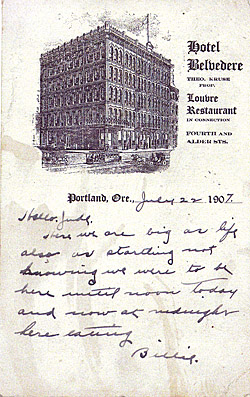 Hotel
Belvedere
THEO. KRUSE
PROP.
Louvre
Restaurant
IN CONNECTION
FOURTH AND
ALDER STS.
Portland, Ore., July 22 1907.
Hello, Judg.
Here we are big as life
also as starting not
knowing we were to be
here until noon today
and now at midnight
here eating
Billie.